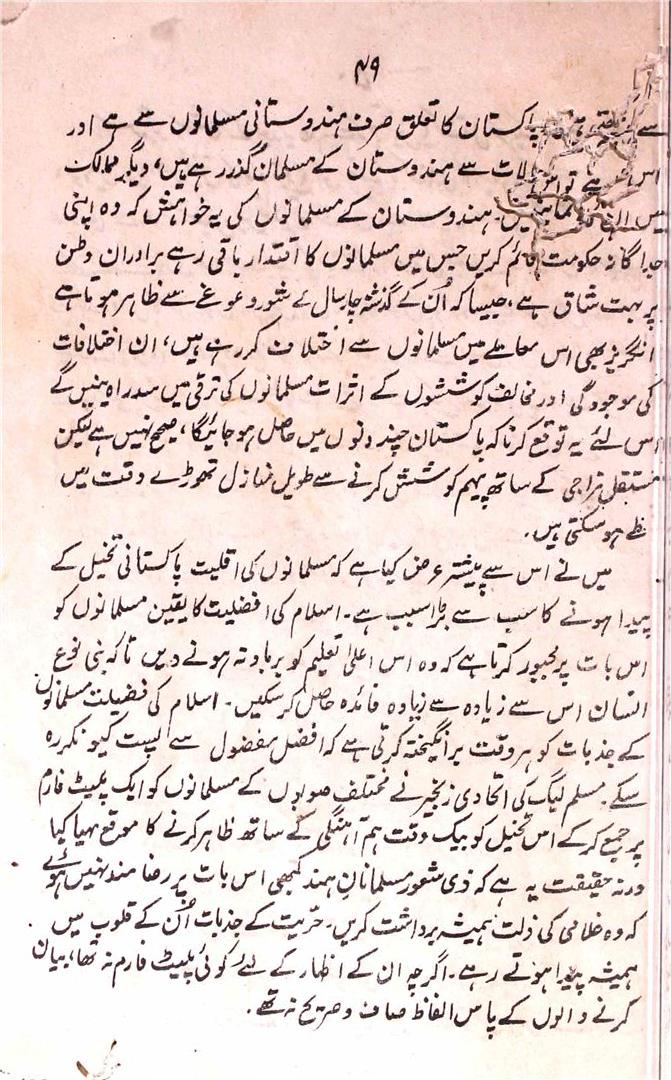 ۴۹
سے پاکستان کا تعلق صرف ہندوستانی مسلمانوں سے ہے اور
اس ہے تو لات سے ہندوستان کے مسلمان گذر رہے ہیں، دیگر ممالک
میں ہیں۔ ہندوستان کے مسلمانوں کی یہ خواہش کہ وہ اپنی
جداگانہ حکومت قائم کریں جس میں مسلمانوں کا اقتدار باقی رہے برادران وطن
پر بہت شاق ہے، جیسا کہ اُن کے گذشتہ چار سال کے شور و غوغے سے ظاہر ہوتا ہے
انگریز بھی اس معاملے میں مسلمانوں سے اختلاف کر رہے ہیں، ان اختلافات
کی موجودگی اور مخالف کوششوں کے اثرات مسلمانوں کی ترقی میں سدراہ بنیں گے
اس لئے یہ توقع کرنا کہ پاکستان چند دنوں میں حاصل ہو جائیگا، صحیح نہیں ہے لیکن
مستقل مزاجی کے ساتھ پیہم کوشش کرنے سے طویل منازل تھوڑے وقت میں
طے ہو سکتی ہیں۔
میں نے اس سے پیشتر عرض کیا ہے کہ مسلمانوں کی اقلیت پاکستانی تخیل کے
پیدا ہونے کا سب سے بڑا سبب ہے۔ اسلام کی افضلیت کا یقین مسلمانوں کو
اس بات پر مجبور کرتا ہے کہ وہ اس اعلیٰ تعلیم کو برباد نہ ہونے دیں تاکہ بنی نوع
انسان اس سے زیادہ سے زیادہ فائدہ حاصل کر سکیں۔ اسلام کی فضیلت مسلمانوں
کے جذبات کو ہر وقت برانگیختہ کرتی ہے کہ افضل مفضول سے پست کیونکر رہ
سکے۔ مسلم لیگ کی اتحادی زنجیر نے مختلف صوبوں کے مسلمانوں کو ایک پلیٹ فارم
پر جمع کر کے اس تخیل کو بیک وقت ہم آہنگی کے ساتھ ظاہر کرنے کا موقع مہیا کیا
ورنہ حقیقت یہ ہے کہ ذی شعور مسلمانانِ ہند کبھی اس بات پر رضا مند نہیں ہوئے
کہ وہ غلامی کی ذلت ہمیشہ برداشت کریں۔ حریت کے جذبات اُن کے قلوب میں
ہمیشہ پیدا ہوتے رہے۔ اگرچہ ان کے اظہار کے لئے کوئی پلیٹ فارم نہ تھا، بیان
کرنے والوں کے پاس الفاظ صاف و صریح نہ تھے۔